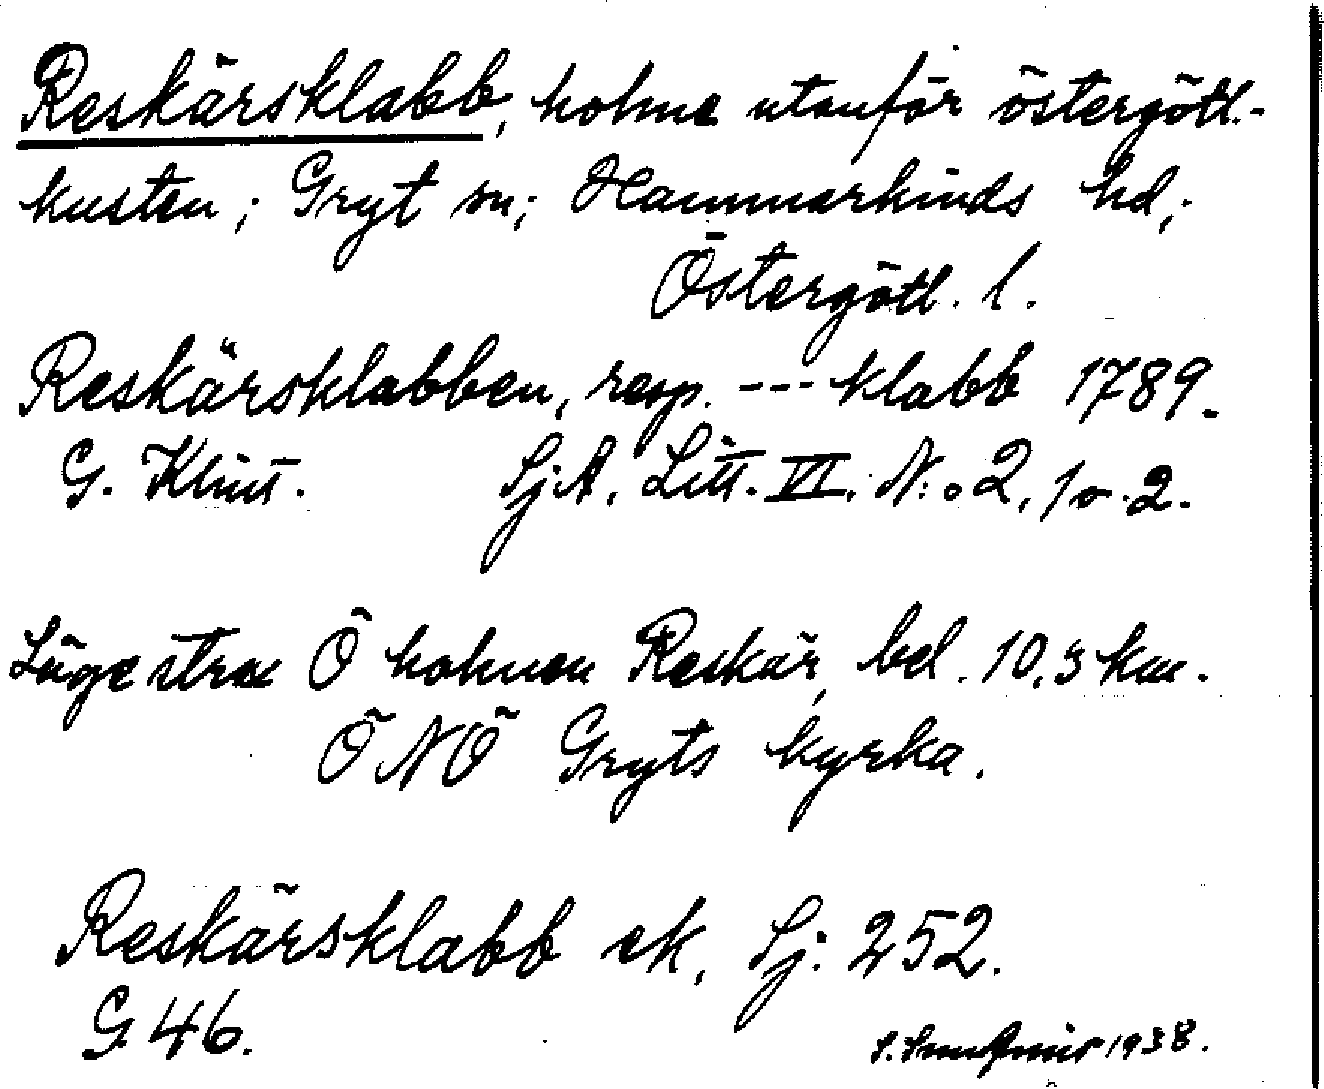 Reskärsklabb, holme utanför östergötl.-
kusten; Gryt sn; Hammarkinds hd;
Östergötl. l.
Reskärsklabben, resp. --- klabb 1789.
G. Klint. Sj.A. Litt. VI. N:o 2, 1 o. 2.
Läge strax Ö holmen Reskär, bel. 10,3 km.
ÖNÖ Gryts kyrka.
Reskärsklabb ek, Sj: 252.
G 46.
1938.